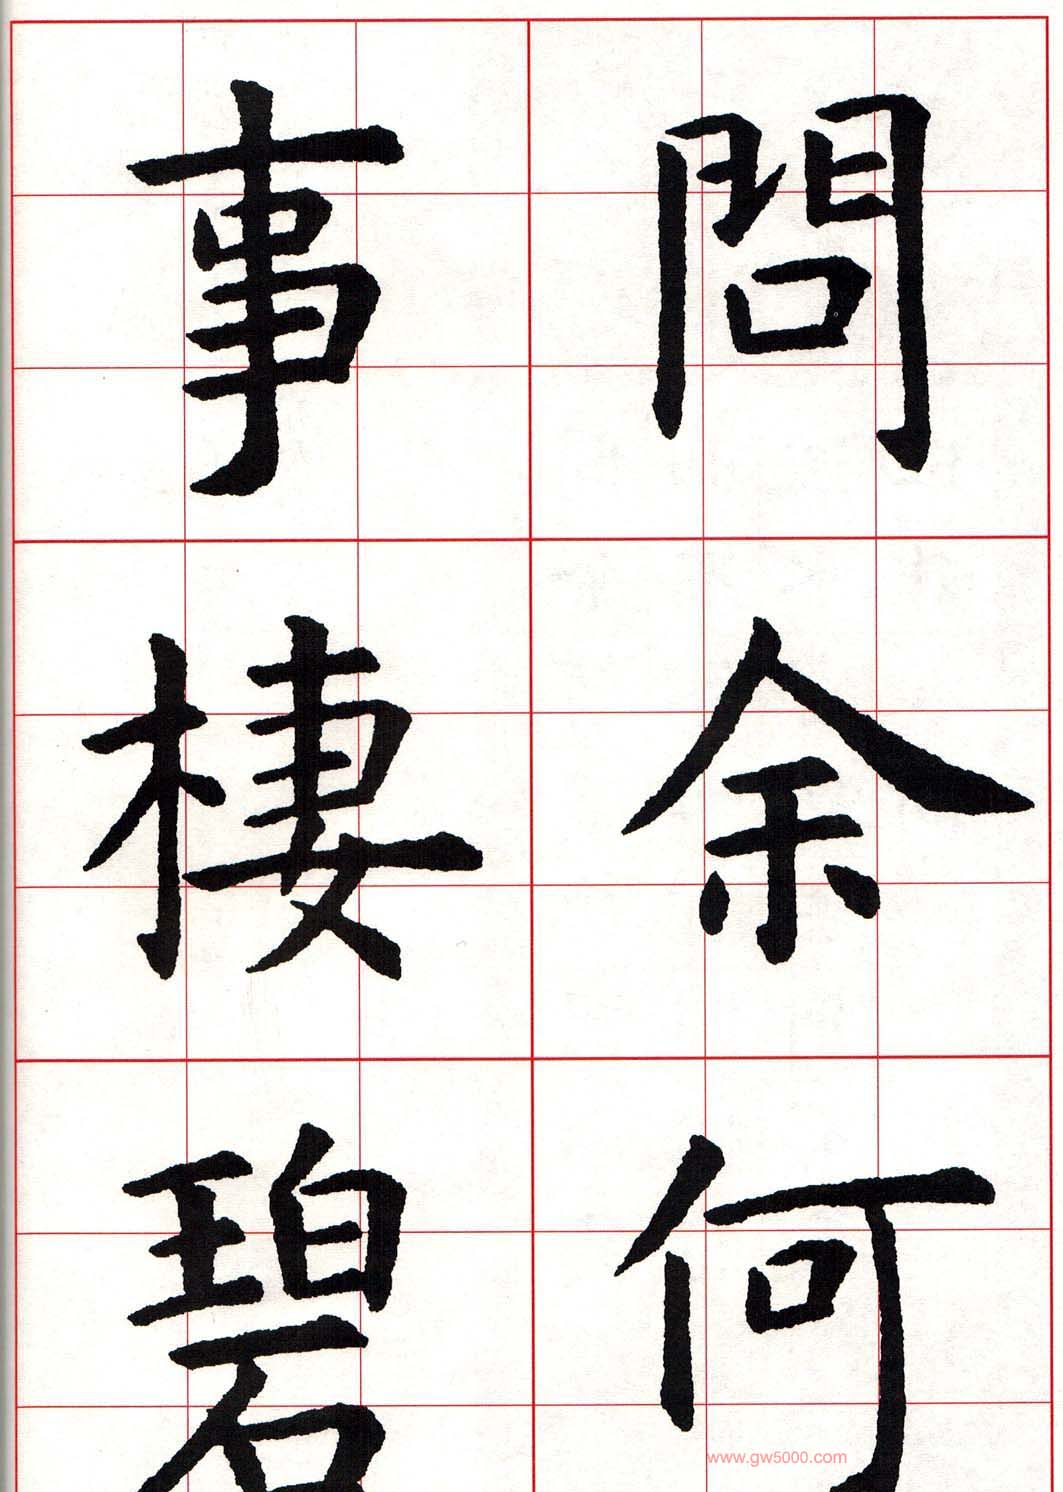 問余何
事棲碧
www.gw5000.com